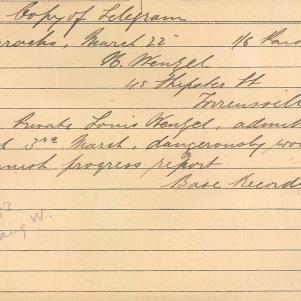 Copy of Telegram
rracks, March 22
N. Wenzel
45 Shipster St
Torrensvill
Private Louis Wenzel, admit
3rd March, dangerously wou
progress report
Base Record